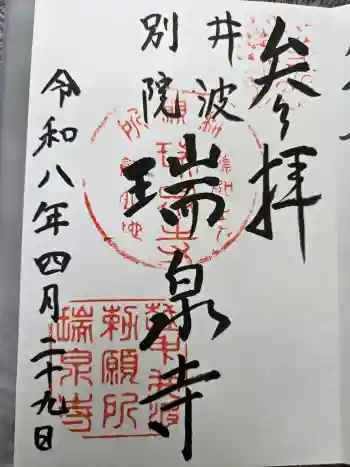 参拝
井波
別院
瑞泉寺
令和八年四月二十九日
勅願所
瑞泉寺